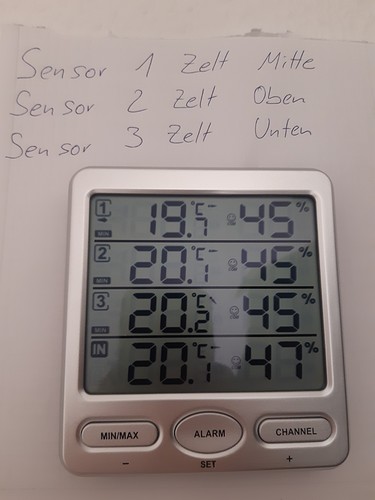 Sensor 1 Zelt Mitte
Sensor 2 Zelt Oben
Sensor 3 Zelt Unten
1 19.7 °C 45 %
MIN
2 20.1 °C 45 %
MIN
3 20.2 °C 45 %
MIN
IN 20.1 °C 47 %
MIN/MAX ALARM CHANNEL
− SET +